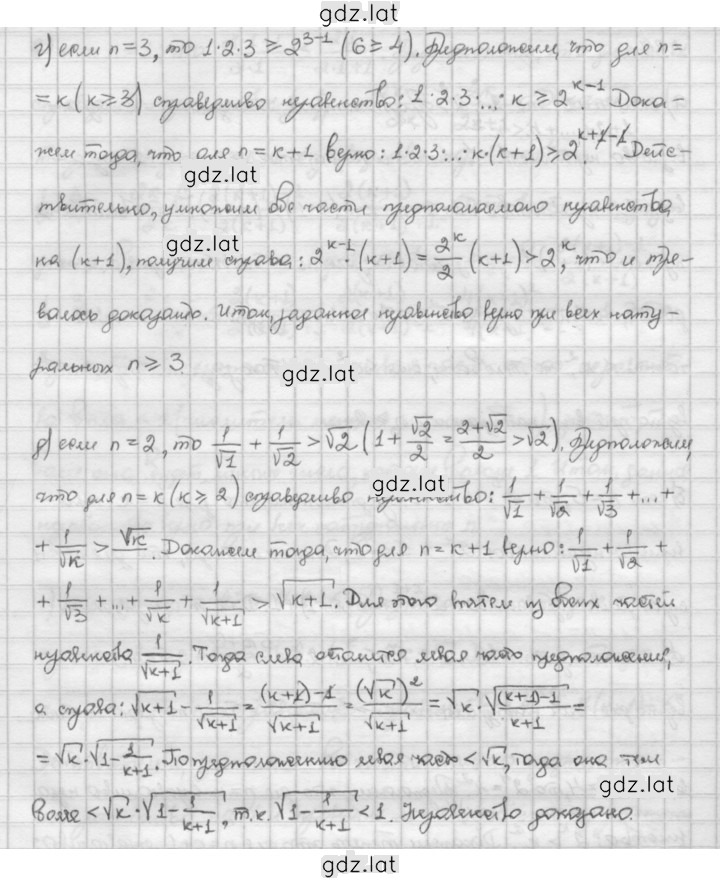 gdz.lat
г) если n=3, то 1·2·3 ≥ 2^{3-1} (6 ≥ 4). Предположим, что для n=
gdz.lat
=к (к ≥ 3) справедливо неравенство: 1·2·3·...·к ≥ 2^{к-1}. Дока-
жем тогда, что для n=к+1 верно: 1·2·3·...·к·(к+1) ≥ 2^{к+1-1}. Дейс-
gdz.lat
твительно, умножим обе части предполагаемого неравенства
gdz.lat
на (к+1), получим справа: 2^{к-1}·(к+1) = \frac{2^к}{2}(к+1) > 2^к, что и тре-
бовалось доказать. Итак, заданное неравенство верно при всех нату-
ральных n ≥ 3
gdz.lat
д) если n=2, то \frac{1}{√1} + \frac{1}{√2} > √2 (1 + \frac{√2}{2} = \frac{2+√2}{2} > √2). Предположим,
gdz.lat
что для n=к (к ≥ 2) справедливо неравенство: \frac{1}{√1} + \frac{1}{√2} + \frac{1}{√3} + ... +
+ \frac{1}{√к} > √к. Докажем тогда, что для n=к+1 верно: \frac{1}{√1} + \frac{1}{√2} +
+ \frac{1}{√3} + ... + \frac{1}{√к} + \frac{1}{√к+1} > √к+1. Для этого вычтем из обеих частей
неравенства \frac{1}{√к+1}. Тогда слева останется левая часть предположения,
а справа: √к+1 - \frac{1}{√к+1} = \frac{(к+1)-1}{√к+1} = \frac{(√к)^2}{√к+1} = √к·√\frac{(к+1)-1}{к+1} =
= √к·√1-\frac{1}{к+1}. По предположению левая часть < √к, тогда она тем
gdz.lat
более < √к·√1-\frac{1}{к+1}, т.к. √1-\frac{1}{к+1} < 1. Неравенство доказано.
gdz.lat